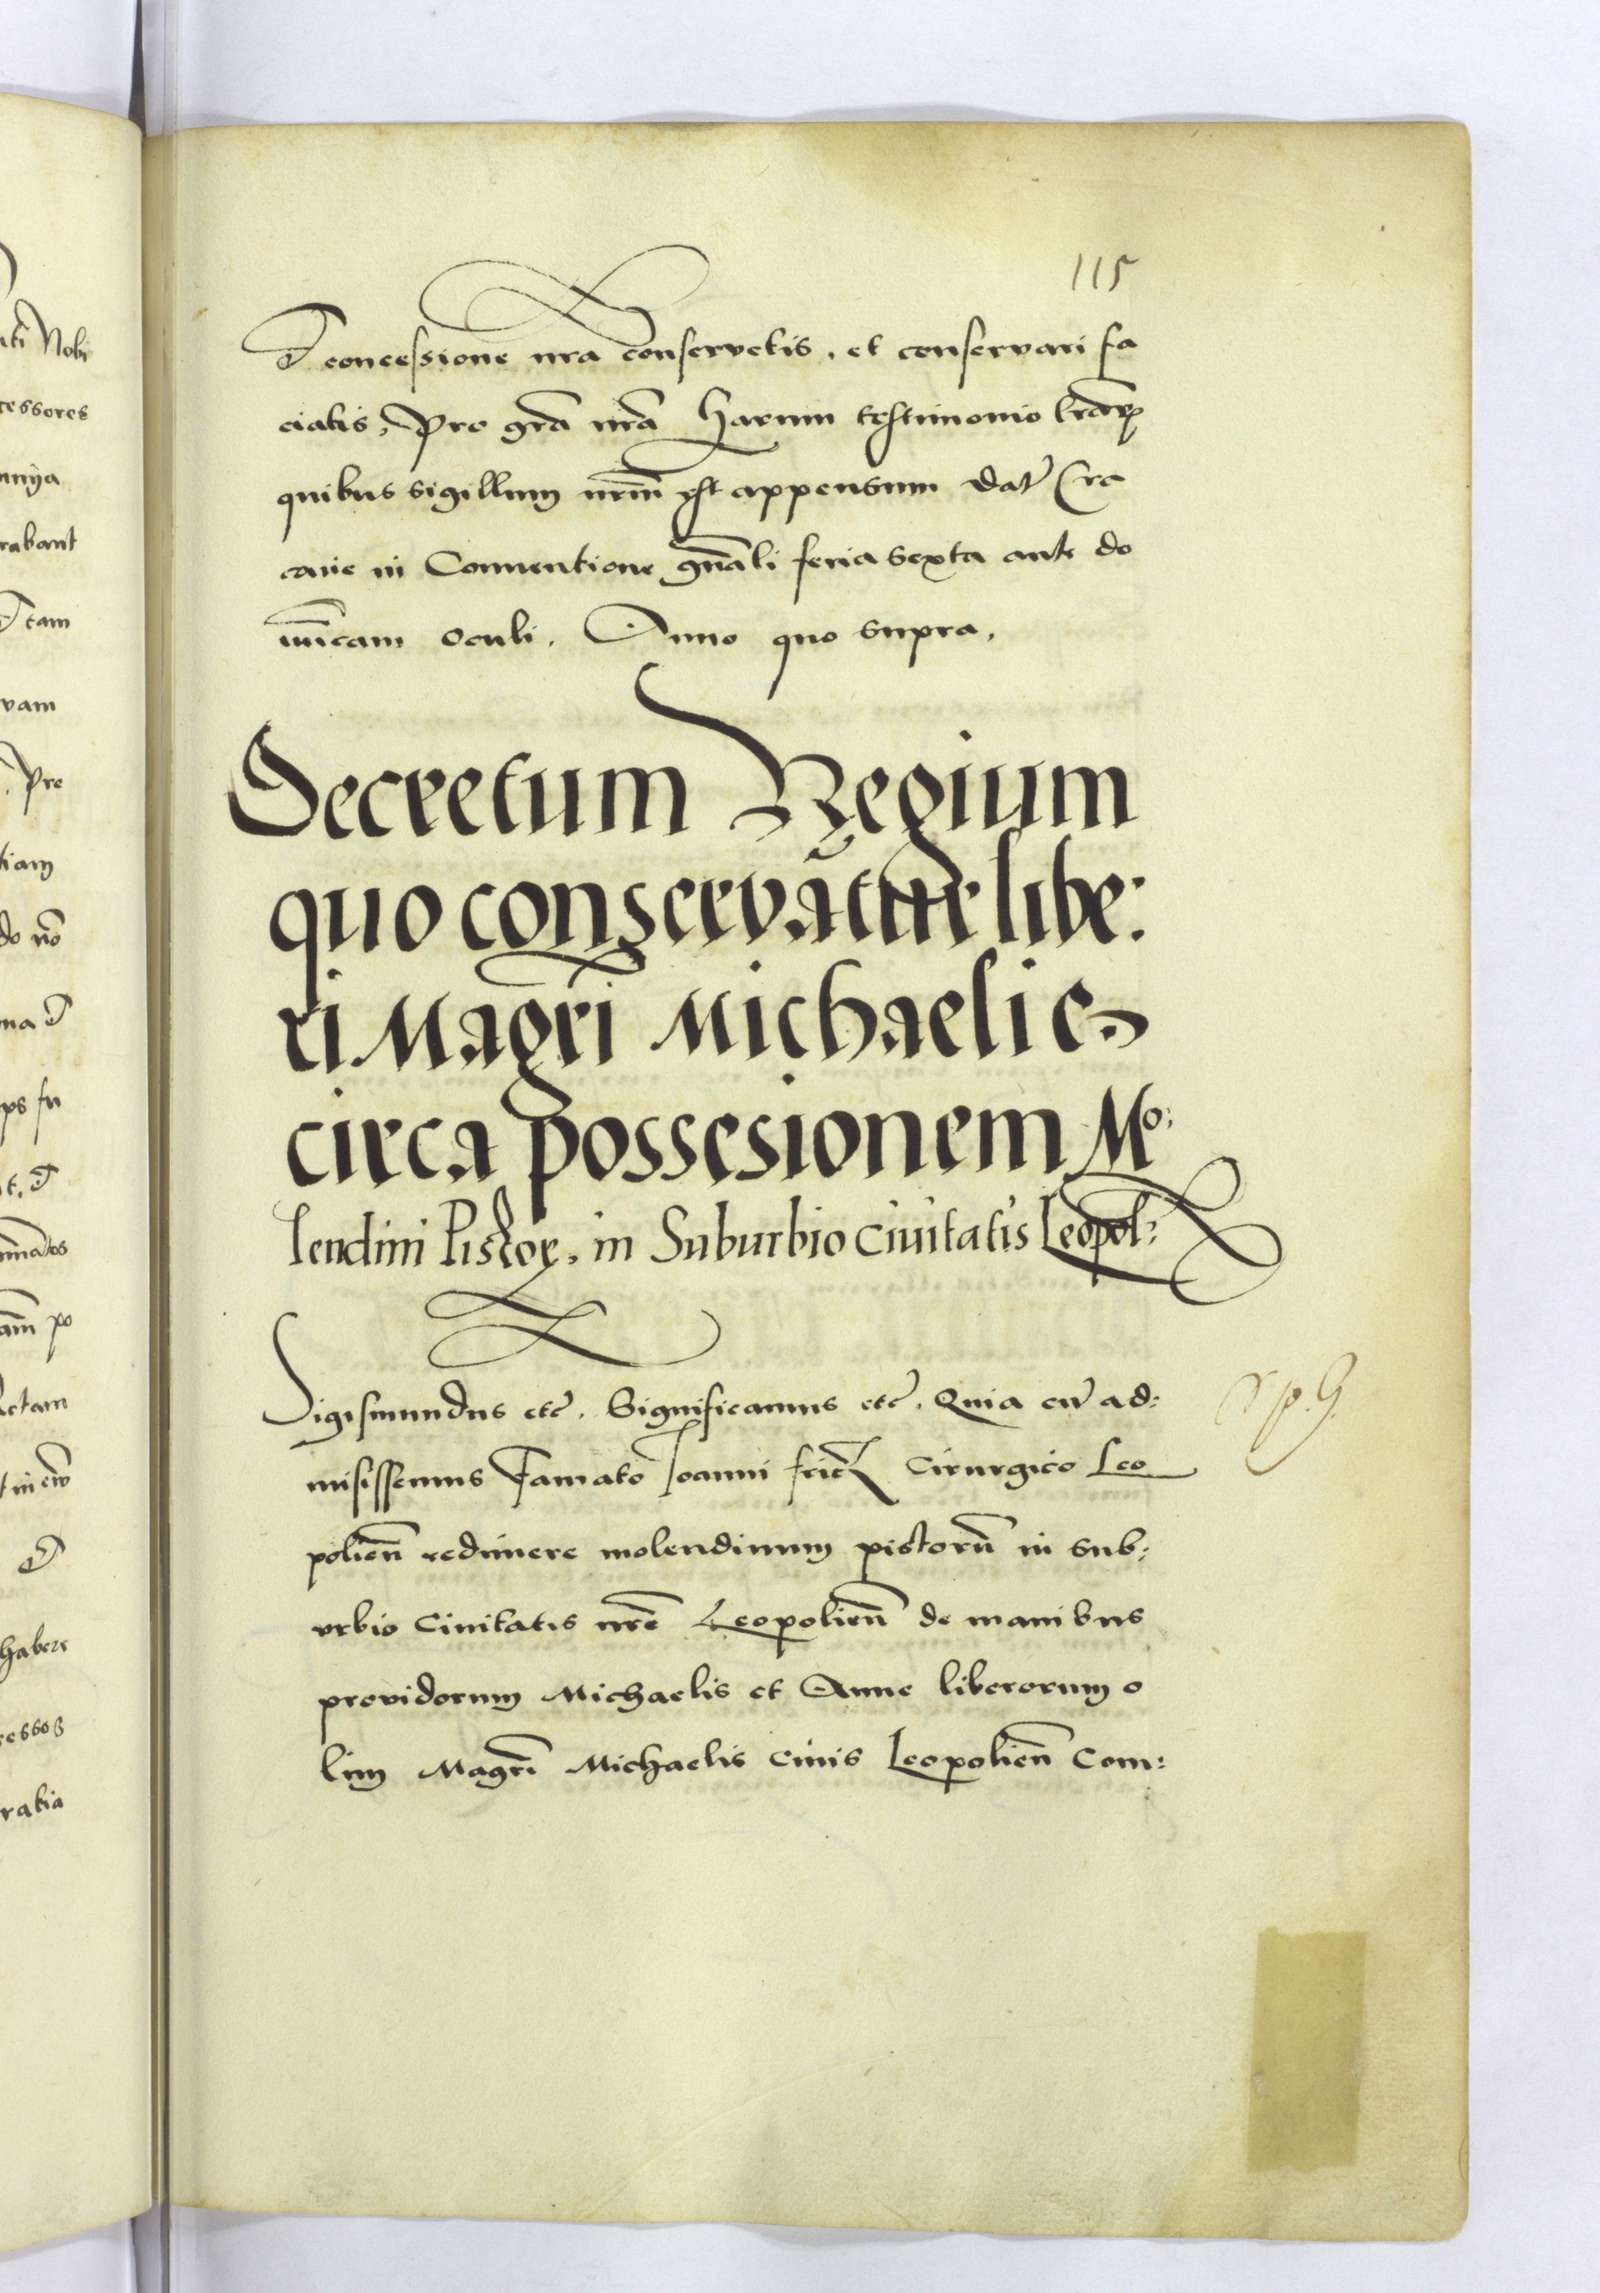 115
& concessione nra conservetis, et conservari fa
ciatis, Pro grã nrã Harum testimonio lrãrꝝ
quibus sigillum nrm̃ est appensum Dat̃ Cra
covie in Conventione gñali feria sexta ante do
minĩcam Oculi. Anno quo supra.
Decretum Regium
quo conservãtur libe:
ri Magrĩ Michaelis
circa possesionem Mo:
lendini Pistoꝝ. in Suburbio Civitatis Leopol:
Sigismundus etc̃. Significamus etc̃. Quia cũ ad:
misissemus Famato Joanni fricz Cirurgico Leo
polieñ redimere molendinum pistorũ in sub:
urbio Civitatis nrẽ Leopolieñ de manibus
providorum Michaelis et Anne liberorum o
lim Magrĩ Michaelis civis Leopolieñ Com:
nti Nobi
cessores
rabant
& tam
vam
Pre
tiam
do nõ
ma &
t. &
am̃ po
t in eũ
&
habere
ratia